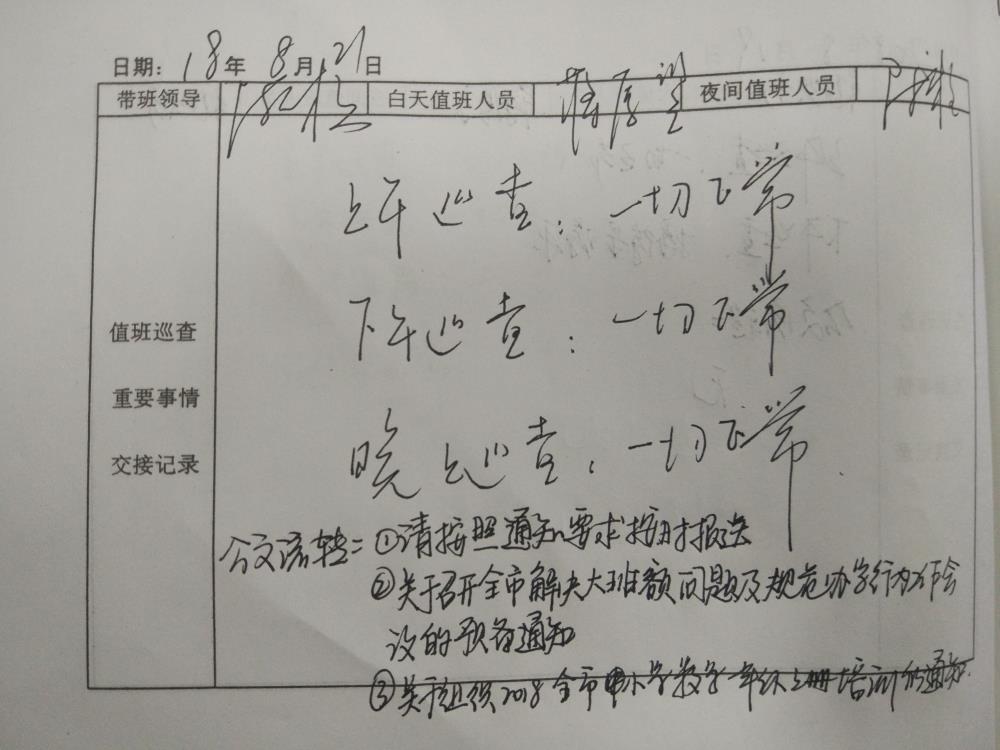 日期: 18年 8月21日
带班领导 白天值班人员 夜间值班人员
上午巡查: 一切正常
下午巡查: 一切正常
值班巡查
重要事情
晚上巡查: 一切正常.
交接记录
公文流转: ①请按照通知要求按时报送
②关于召开全市解决大班额问题及规范办学行为工作会
议的预备通知
③关于组织2018全市中小学教学年级上册培训的通知.